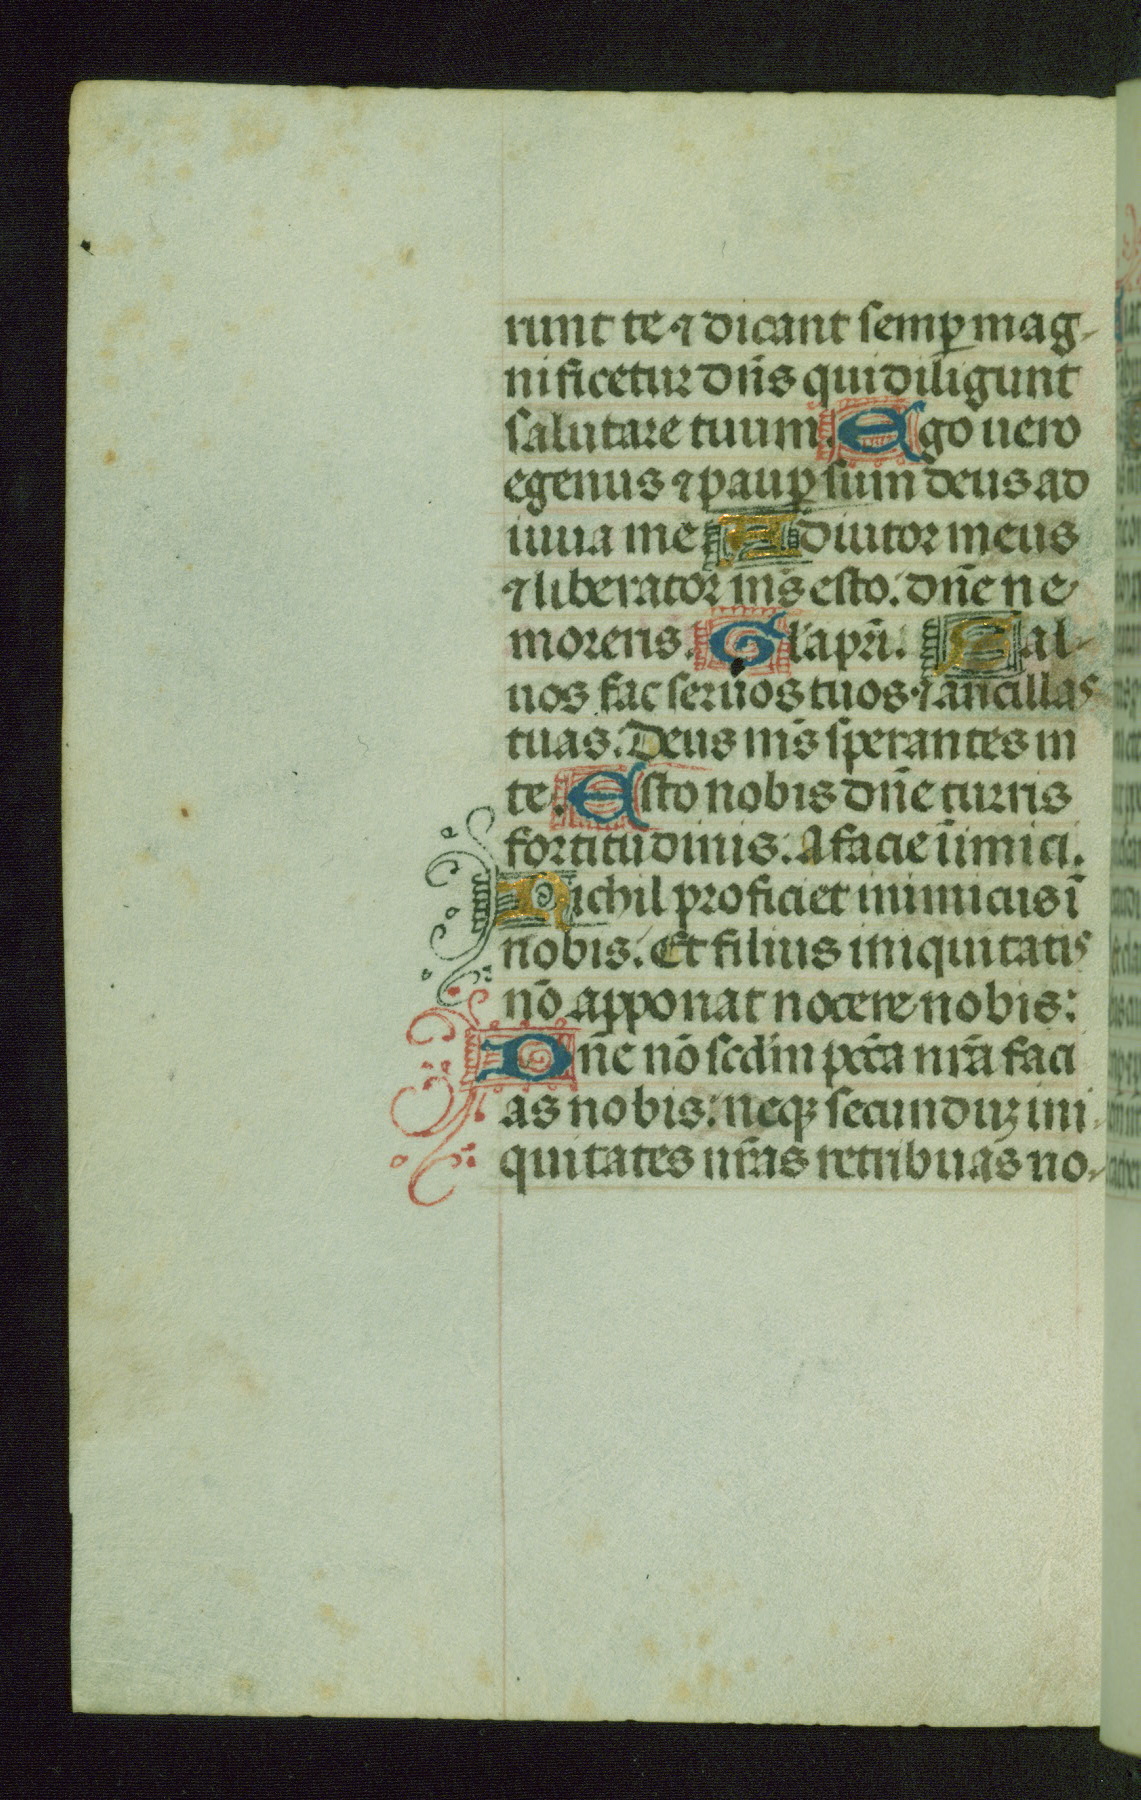 runt te ⁊ dicant semꝑ mag-
nificetur dn̄s qui diligunt
salutare tuum. Ego uero
egenus ⁊ pauꝑ sum deus ad
iuua me Adiutor meus
⁊ liberator ms̄ esto. dn̄e ne
moreris. Gl'a pr̄i. Sal-
uos fac seruos tuos ⁊ ancillas
tuas. Deus ms̄ sperantes in
te. Esto nobis dn̄e turris
fortitudinis. A facie īimici.
Nichil proficiet inimicus ī
nobis. Et filius iniquitatis
nō apponat nocere nobis:
Dn̄e nō scd̄m pc̄ca nr̄a faci
as nobis: neqꝫ secunduꝫ ini-
quitates nr̄as retribuas no-